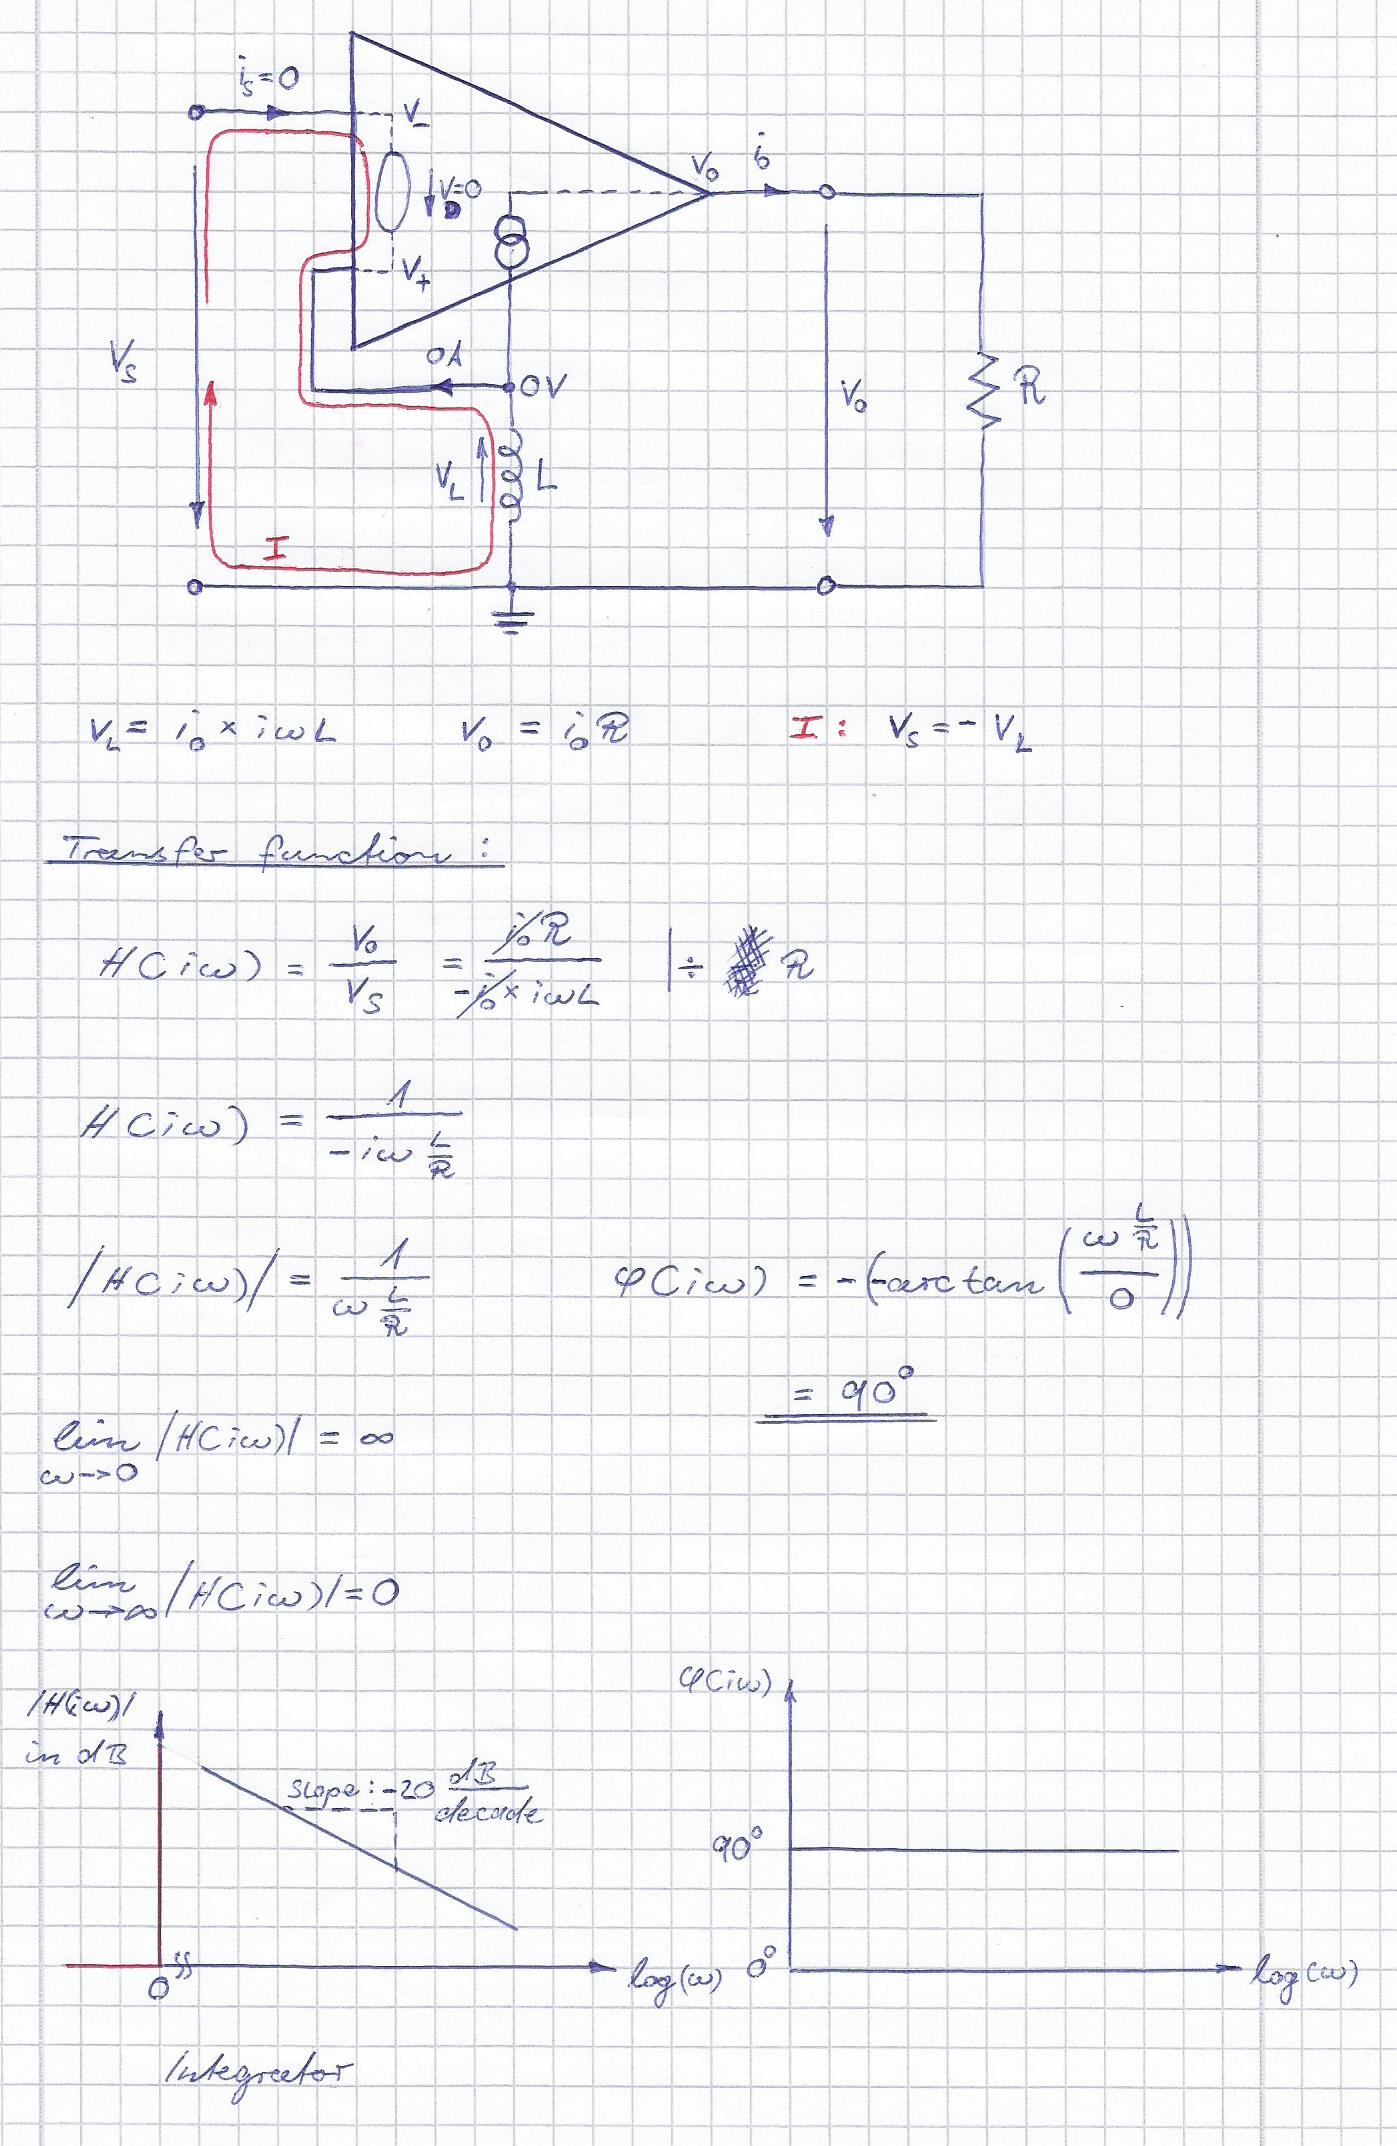 i_s=0
V_-
V_D=0
V_0
i_0
V_+
V_s
0A
0V
V_0
R
V_L
L
I
V_L = i_0 × iωL V_0 = i_0 R I: V_s = - V_L
Transfer function:
H(iω) = V_0/V_s = i_0 R/(-i_0 × iωL) | ÷ R
H(iω) = 1/(-iω L/R)
|H(iω)| = 1/(ω L/R) φ(iω) = -(-arctan((ω L/R)/0))
= 90°
lim ω→0 |H(iω)| = ∞
lim ω→∞ |H(iω)| = 0
|H(iω)|
in dB
slope: -20 dB/decade
0
log(ω)
φ(iω)
90°
0°
log(ω)
Integrator